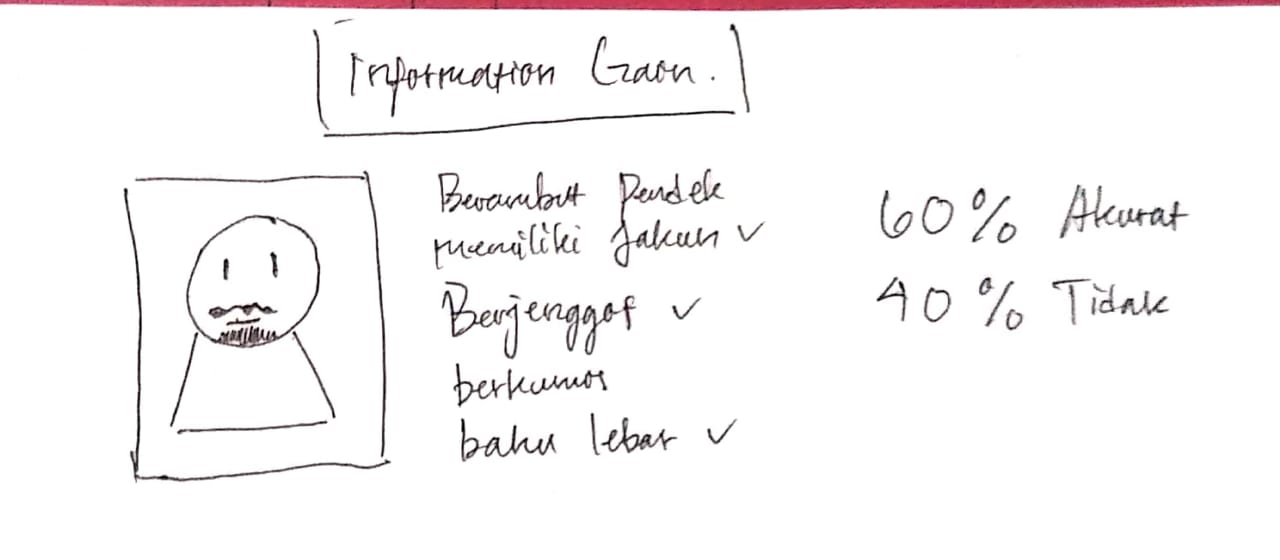 Information Gaon.
Berambut Pendek
memiliki Jakun ✓
Berjenggot ✓
berkumis
bahu lebar ✓
60% Akurat
40% Tidak